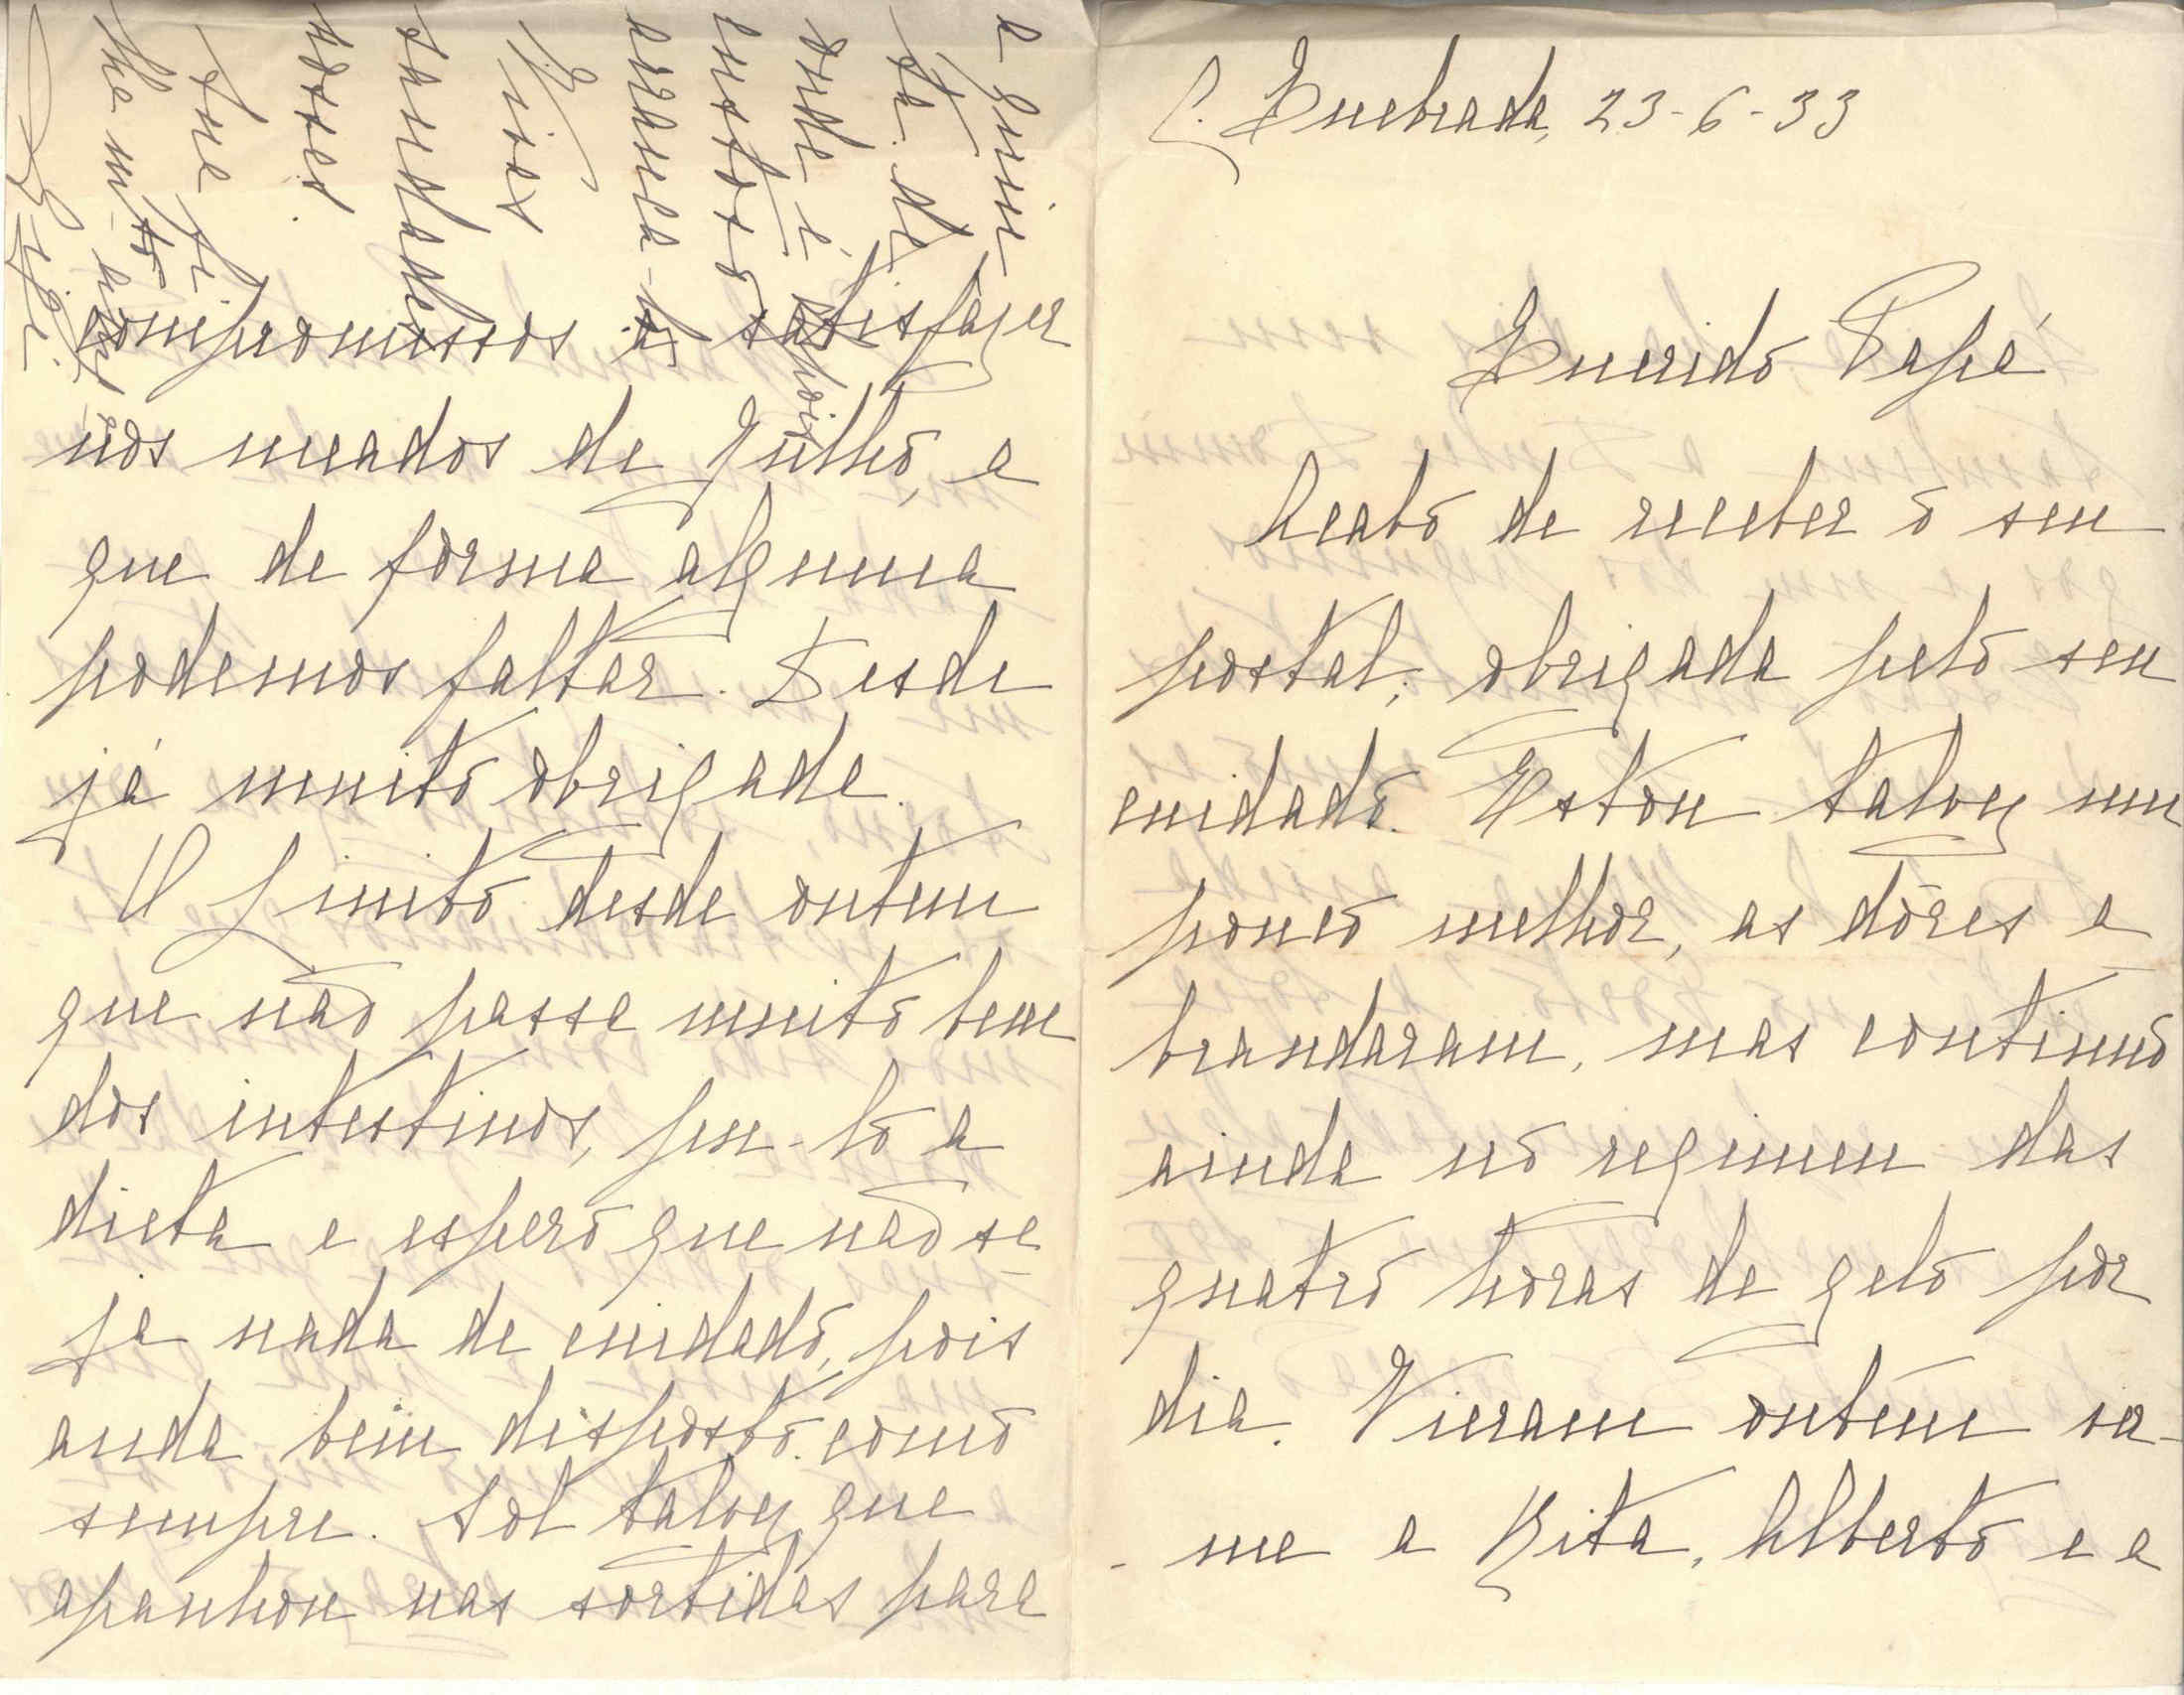 C. Quebrada, 23-6-33
Querido Papá
Acabo de receber o seu
postal; obrigada pelo seu
cuidado. Estou talvez um
pouco melhor, as dôres a
brandaram, mas continuo
ainda no regimen das
quatro horas de gelo por
dia. Vieram ontem va-
-me a Rita, Alberto e a
compromissos a satisfazer
nos meados de Julho, a
que de forma alguma
podemos faltar. Desde
já muito obrigada.
O Jinito desde ontem
que não passa muito bem
dos intestinos, pu-lo a
dieta e espero que não se
ja nada de cuidado, pois
anda bem disposto como
sempre. Sol talvez que
apanhou nas sortidas para
a quin
ta de
onde é depois
custoso
arranca-lo
Mises
saudades
nossas.
Sua fi
lha mto amiga